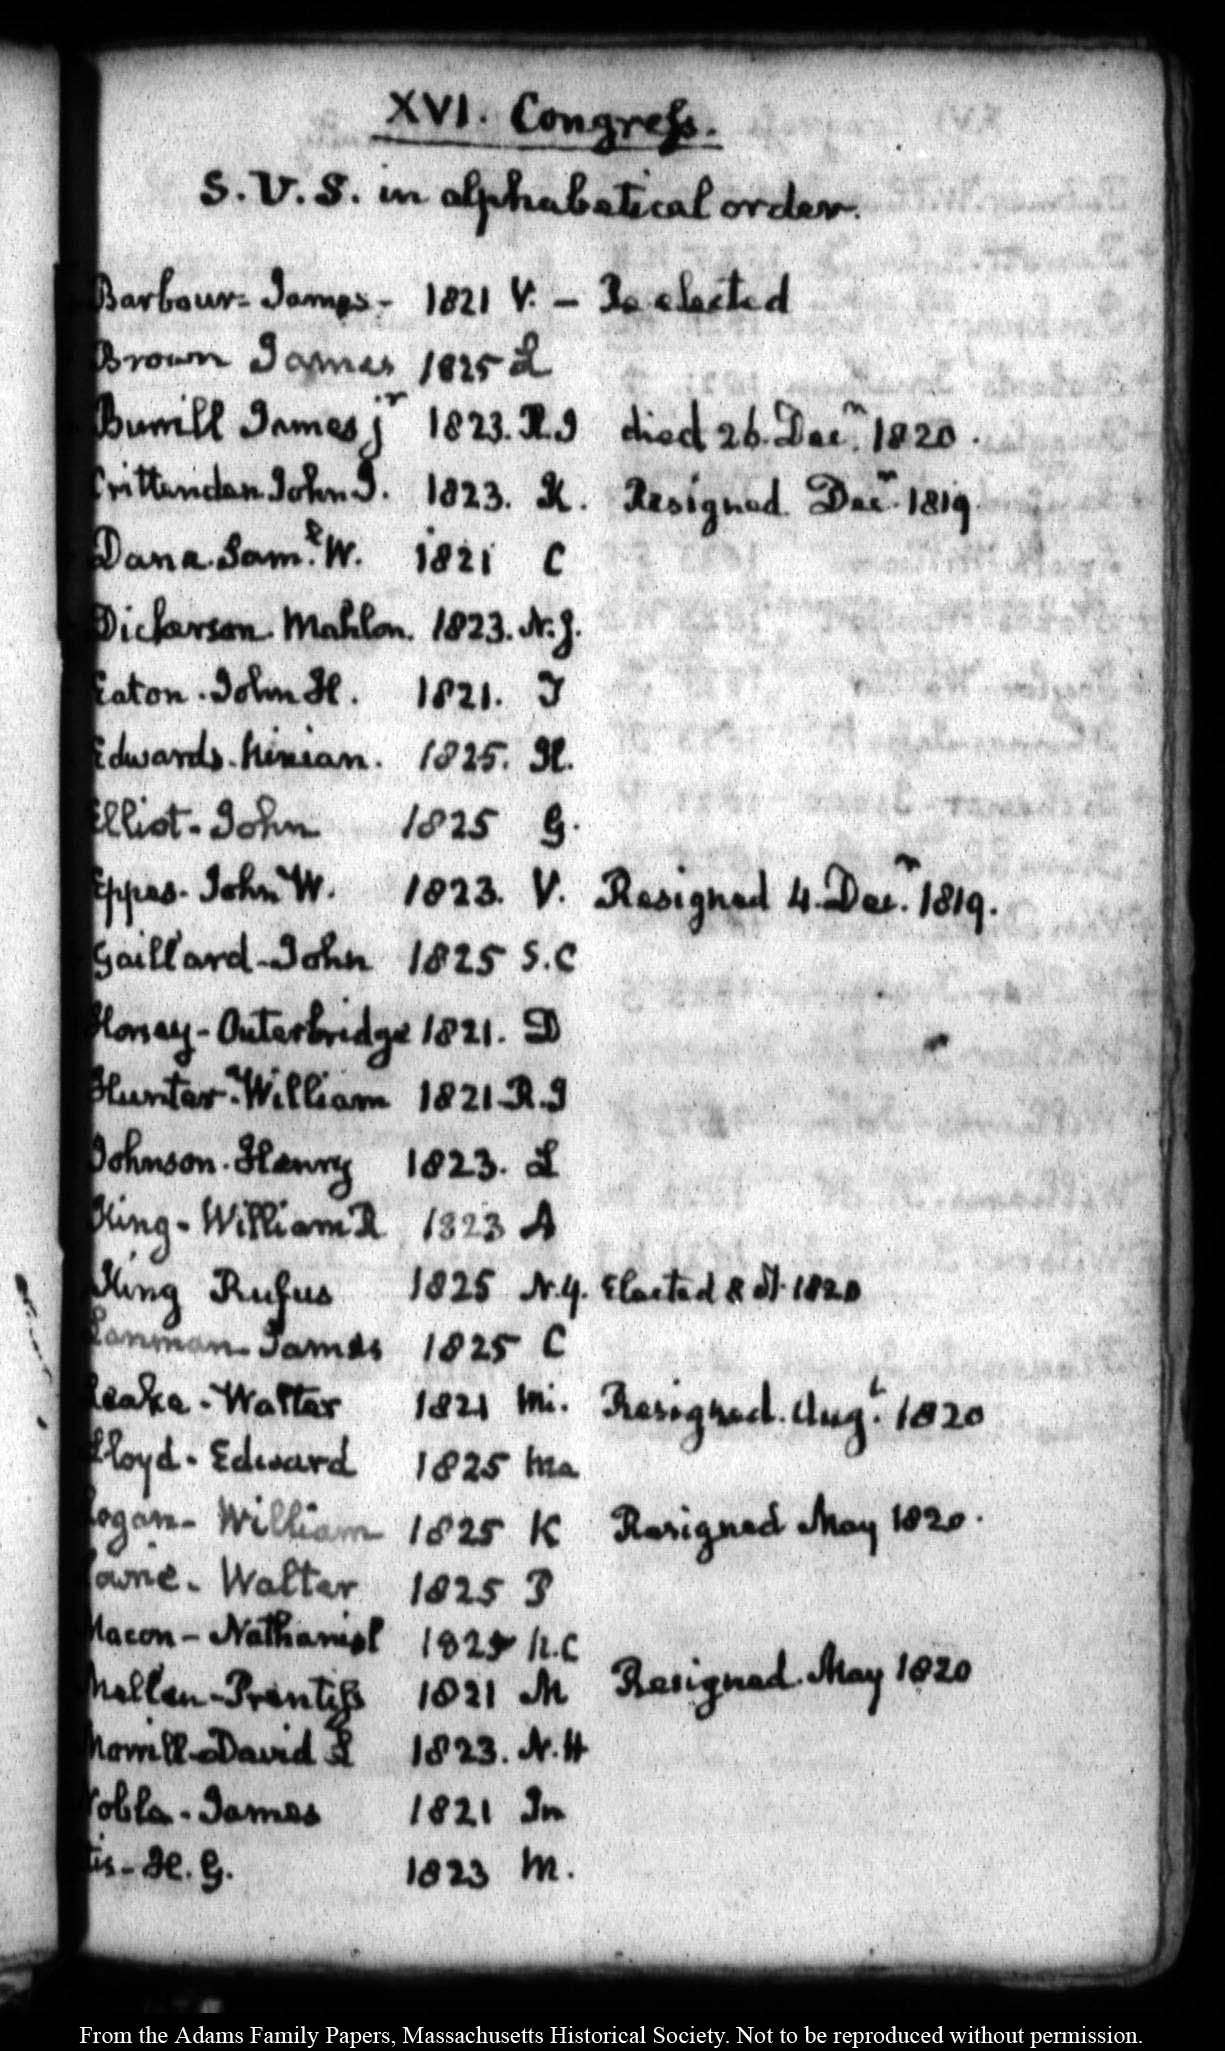 XVI. Congress.
S.U.S. in alphabetical order.
Barbour- James- 1821 V. – Re elected
Brown James 1825 L
Burrill James jr 1823. R.I died 26. Decr. 1820.
Crittenden John J. 1823. K. Resigned Decr. 1819.
Dana. Saml. W. 1821 C
Dickerson. Mahlon. 1823. N.J.
Eaton. John H. 1821. T
Edwards. Ninian. 1825. Il.
Elliot- John 1825 G.
Eppes- John W. 1823. V. Resigned 4. Decr. 1819.
Gaillard- John 1825 S.C
Horsey- Outerbridge 1821. D
Hunter- William 1821. R.I
Johnson. Henry 1823. L
King- William R 1823 A
King Rufus 1825 N.Y. Elected 8 1820
Lanman- James 1825 C
Leake- Walter 1821 Mi. Resigned. Augt. 1820
Lloyd- Edward 1825 Ma
Logan- William 1825 K Resigned May 1820.
Lowrie- Walter 1825 P
Macon- Nathaniel 1825 N.C
Mellen- Prentiss 1821 M Resigned. May 1820
Morrill- David L 1823. N.H
Noble- James 1821 In
tis- H. G. 1823 M.
From the Adams Family Papers, Massachusetts Historical Society. Not to be reproduced without permission.